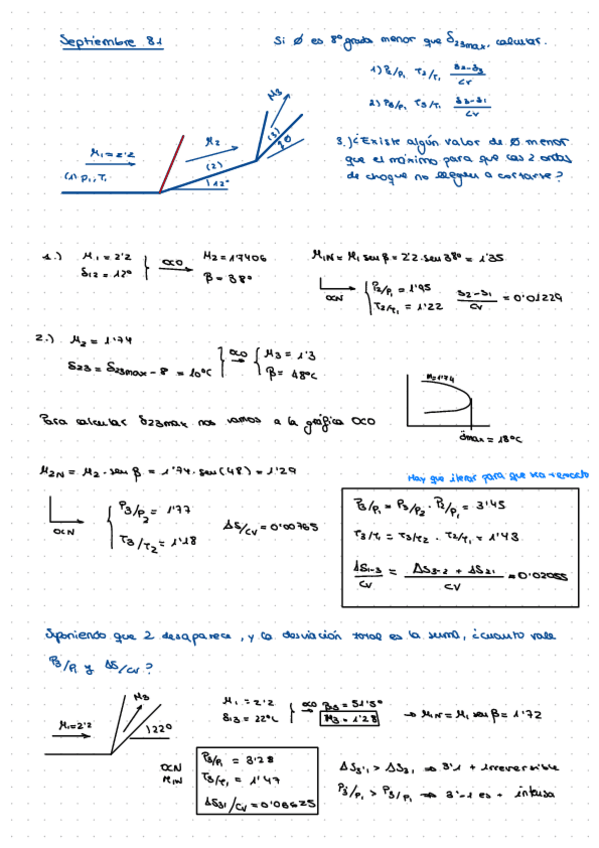 Septiembre 81
Si Ø es 8º grados menor que δ23max. calcular.
1) P2/P1 T2/T1
2) P3/P1 T3/T1 S3-S1/CV
3.) ¿Existe algún valor de Ø menor
que el máximo para que las 2 ondas
de choque no lleguen a cortarse?
M1 = 2'2
(1) P1, T1
M2
(2)
12º
M3
(3)
Ø
1.) M1 = 2'2
δ12 = 12º
OCO
M2 = 1'7406
β = 38º
M1N = M1 sen β = 2'2 · sen 38º = 1'35
OCN
P2/P1 = 1'95
T2/T1 = 1'22
S2-S1/CV = 0'01229
2.) M2 = 1'74
δ23 = δ23max - 8 = 10ºC
OCO
M3 = 1'3
β = 48ºC
M=1'74
δmax = 18ºC
Para calcular δ23max nos vamos a la gráfica OCO
M2N = M2 · sen β = 1'74 · sen (48) = 1'29
Hay que iterar para que sea + exacto
OCN
P3/P2 = 1'77
T3/T2 = 1'18
ΔS/CV = 0'00765
P3/P1 = P3/P2 · P2/P1 = 3'45
T3/T1 = T3/T2 · T2/T1 = 1'43
ΔS1-3/CV = ΔS3-2 + ΔS21/CV = 0'02055
Suponiendo que 2 desaparece, y la desviación total es la suma, ¿cuanto vale
P3/P1 y ΔS/CV?
M1=2'2
M3
22º
M1 = 2'2
δ13 = 22ºC
OCO
β3 = 51'5º
M3 = 1'28
→ M1N = M1 sen β = 1'72
OCN
M1N
P3/P1 = 3'28
T3/T1 = 1'47
ΔS31/CV = 0'08625
ΔS3'1 > ΔS31 ⇒ 3'1 + irreversible
P3'/P1 > P3/P1 ⇒ 3'-1 es + intensa